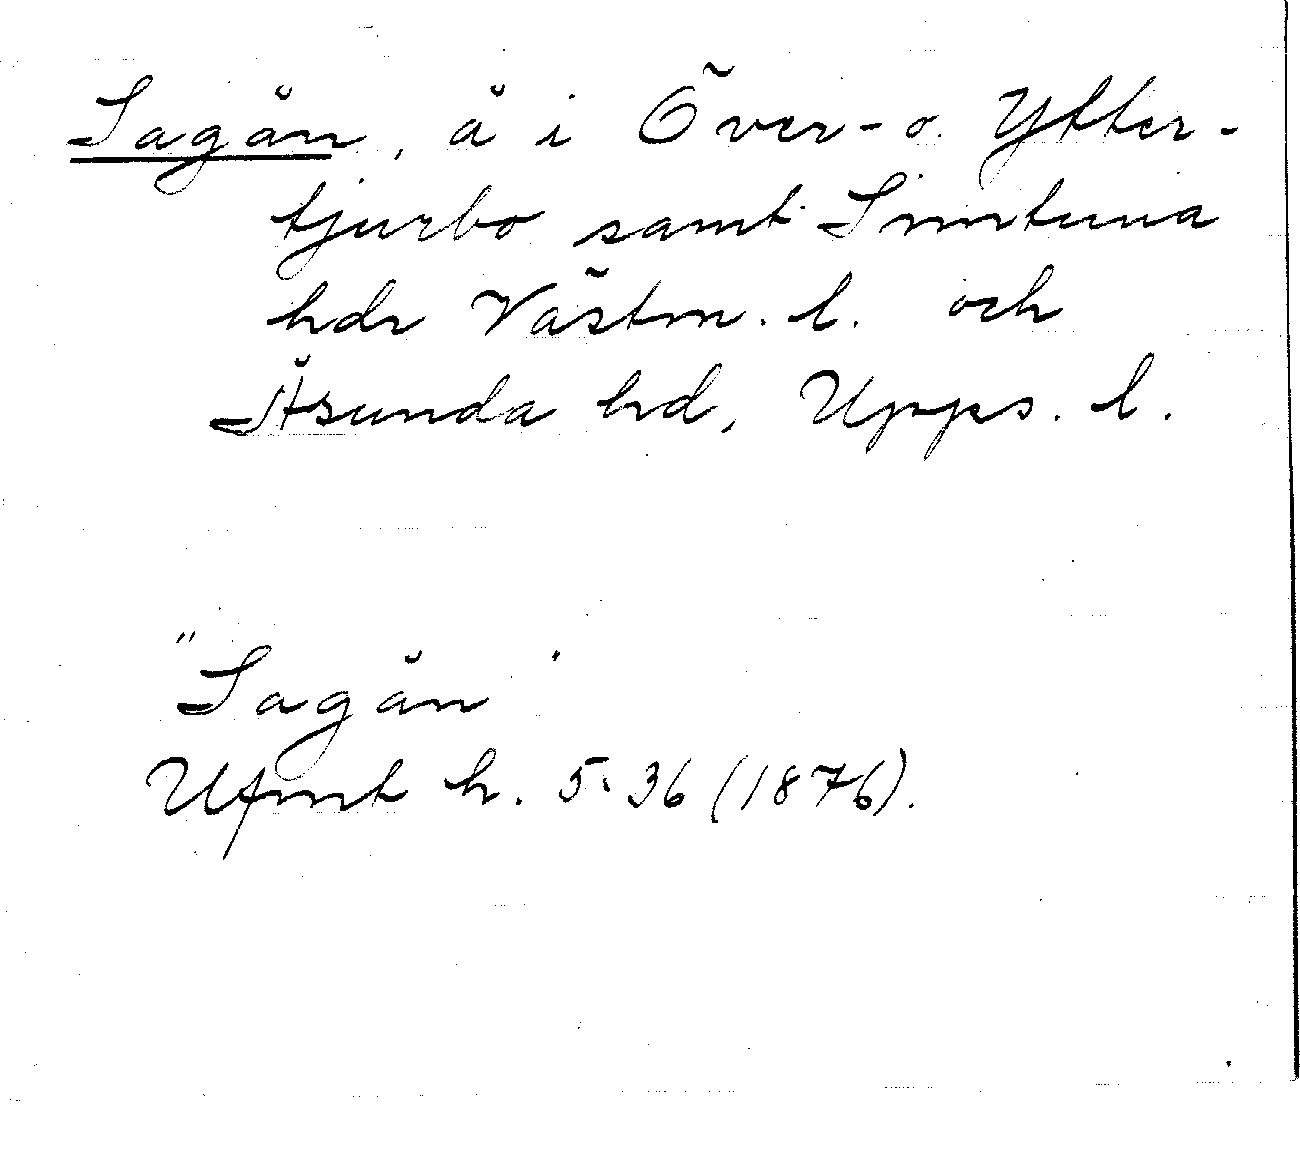 Sagån, å i Över- o. Ytter-
tjurbo samt Simtuna
hdr Västm. l. och
Åsunda hd, Upps. l.
"Sagån"
Ufmt h. 5. 36 (1876).